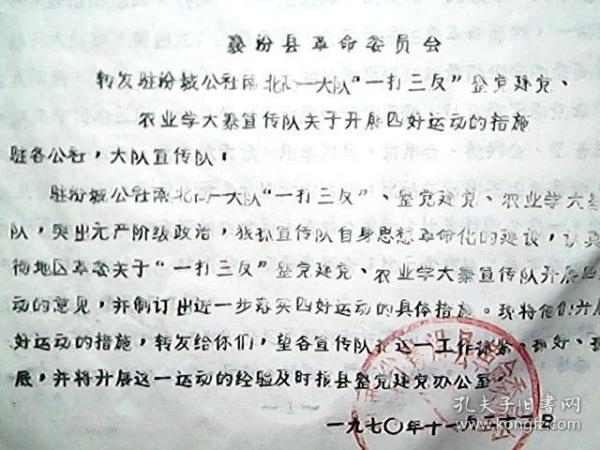 襄汾县革命委员会
转发驻汾城公社南北 一大队“一打三反”整党建党、
农业学大寨宣传队关于开展四好运动的措施
驻各公社，大队宣传队：
驻汾城公社南北 大队“一打三反”、整党建党、农业学大寨
队，突出无产阶级政治，狠抓宣传队自身思想革命化的建设，认真
彻地区革委关于“一打三反”整党建党、农业学大寨宣传队开展四
动的意见，并制订出进一步落实四好运动的具体措施。现将他们开展
好运动的措施，转发给你们，望各宣传队把这一工作 抓好、
底，并将开展这一运动的经验及时报县整党建党办公室。
一九七〇年十一月二十一日
孔夫子旧书网
www.kongfz.com